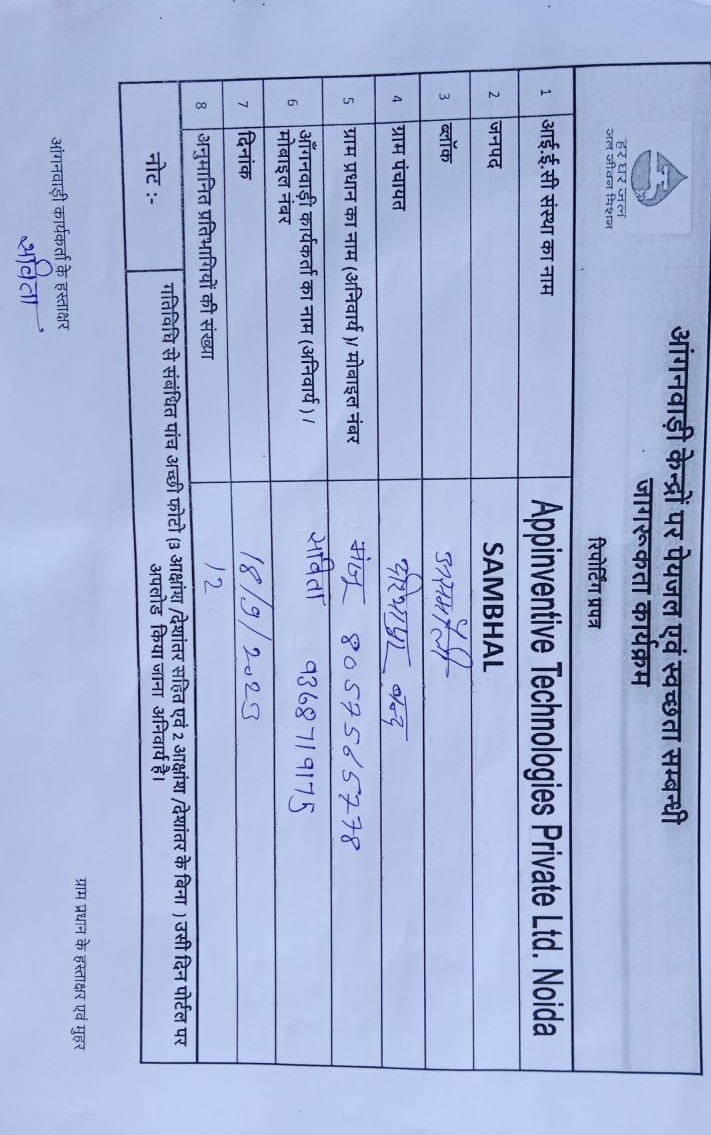 हर घर जल
जल जीवन मिशन
आंगनवाड़ी केन्द्रों पर पेयजल एवं स्वच्छता सम्बन्धी
जागरूकता कार्यक्रम
रिपोर्टिंग प्रपत्र
1 आई.ई.सी संस्था का नाम Appinventive Technologies Private Ltd. Noida
2 जनपद SAMBHAL
3 ब्लॉक
4 ग्राम पंचायत
5 ग्राम प्रधान का नाम (अनिवार्य )/ मोबाइल नंबर
6 आँगनवाड़ी कार्यकर्ता का नाम (अनिवार्य ) / सविता
मोबाइल नंबर
7 दिनांक 18/9/2023
8 अनुमानित प्रतिभागियों की संख्या 12
नोट :- गतिविधि से संबंधित पांच अच्छी फोटो (3 आक्षांश /देशांतर सहित एवं 2 आक्षांश /देशांतर के बिना ) उसी दिन पोर्टल पर
अपलोड किया जाना अनिवार्य है।
आंगनवाड़ी कार्यकर्ता के हस्ताक्षर ग्राम प्रधान के हस्ताक्षर एवं मुहर
सविता